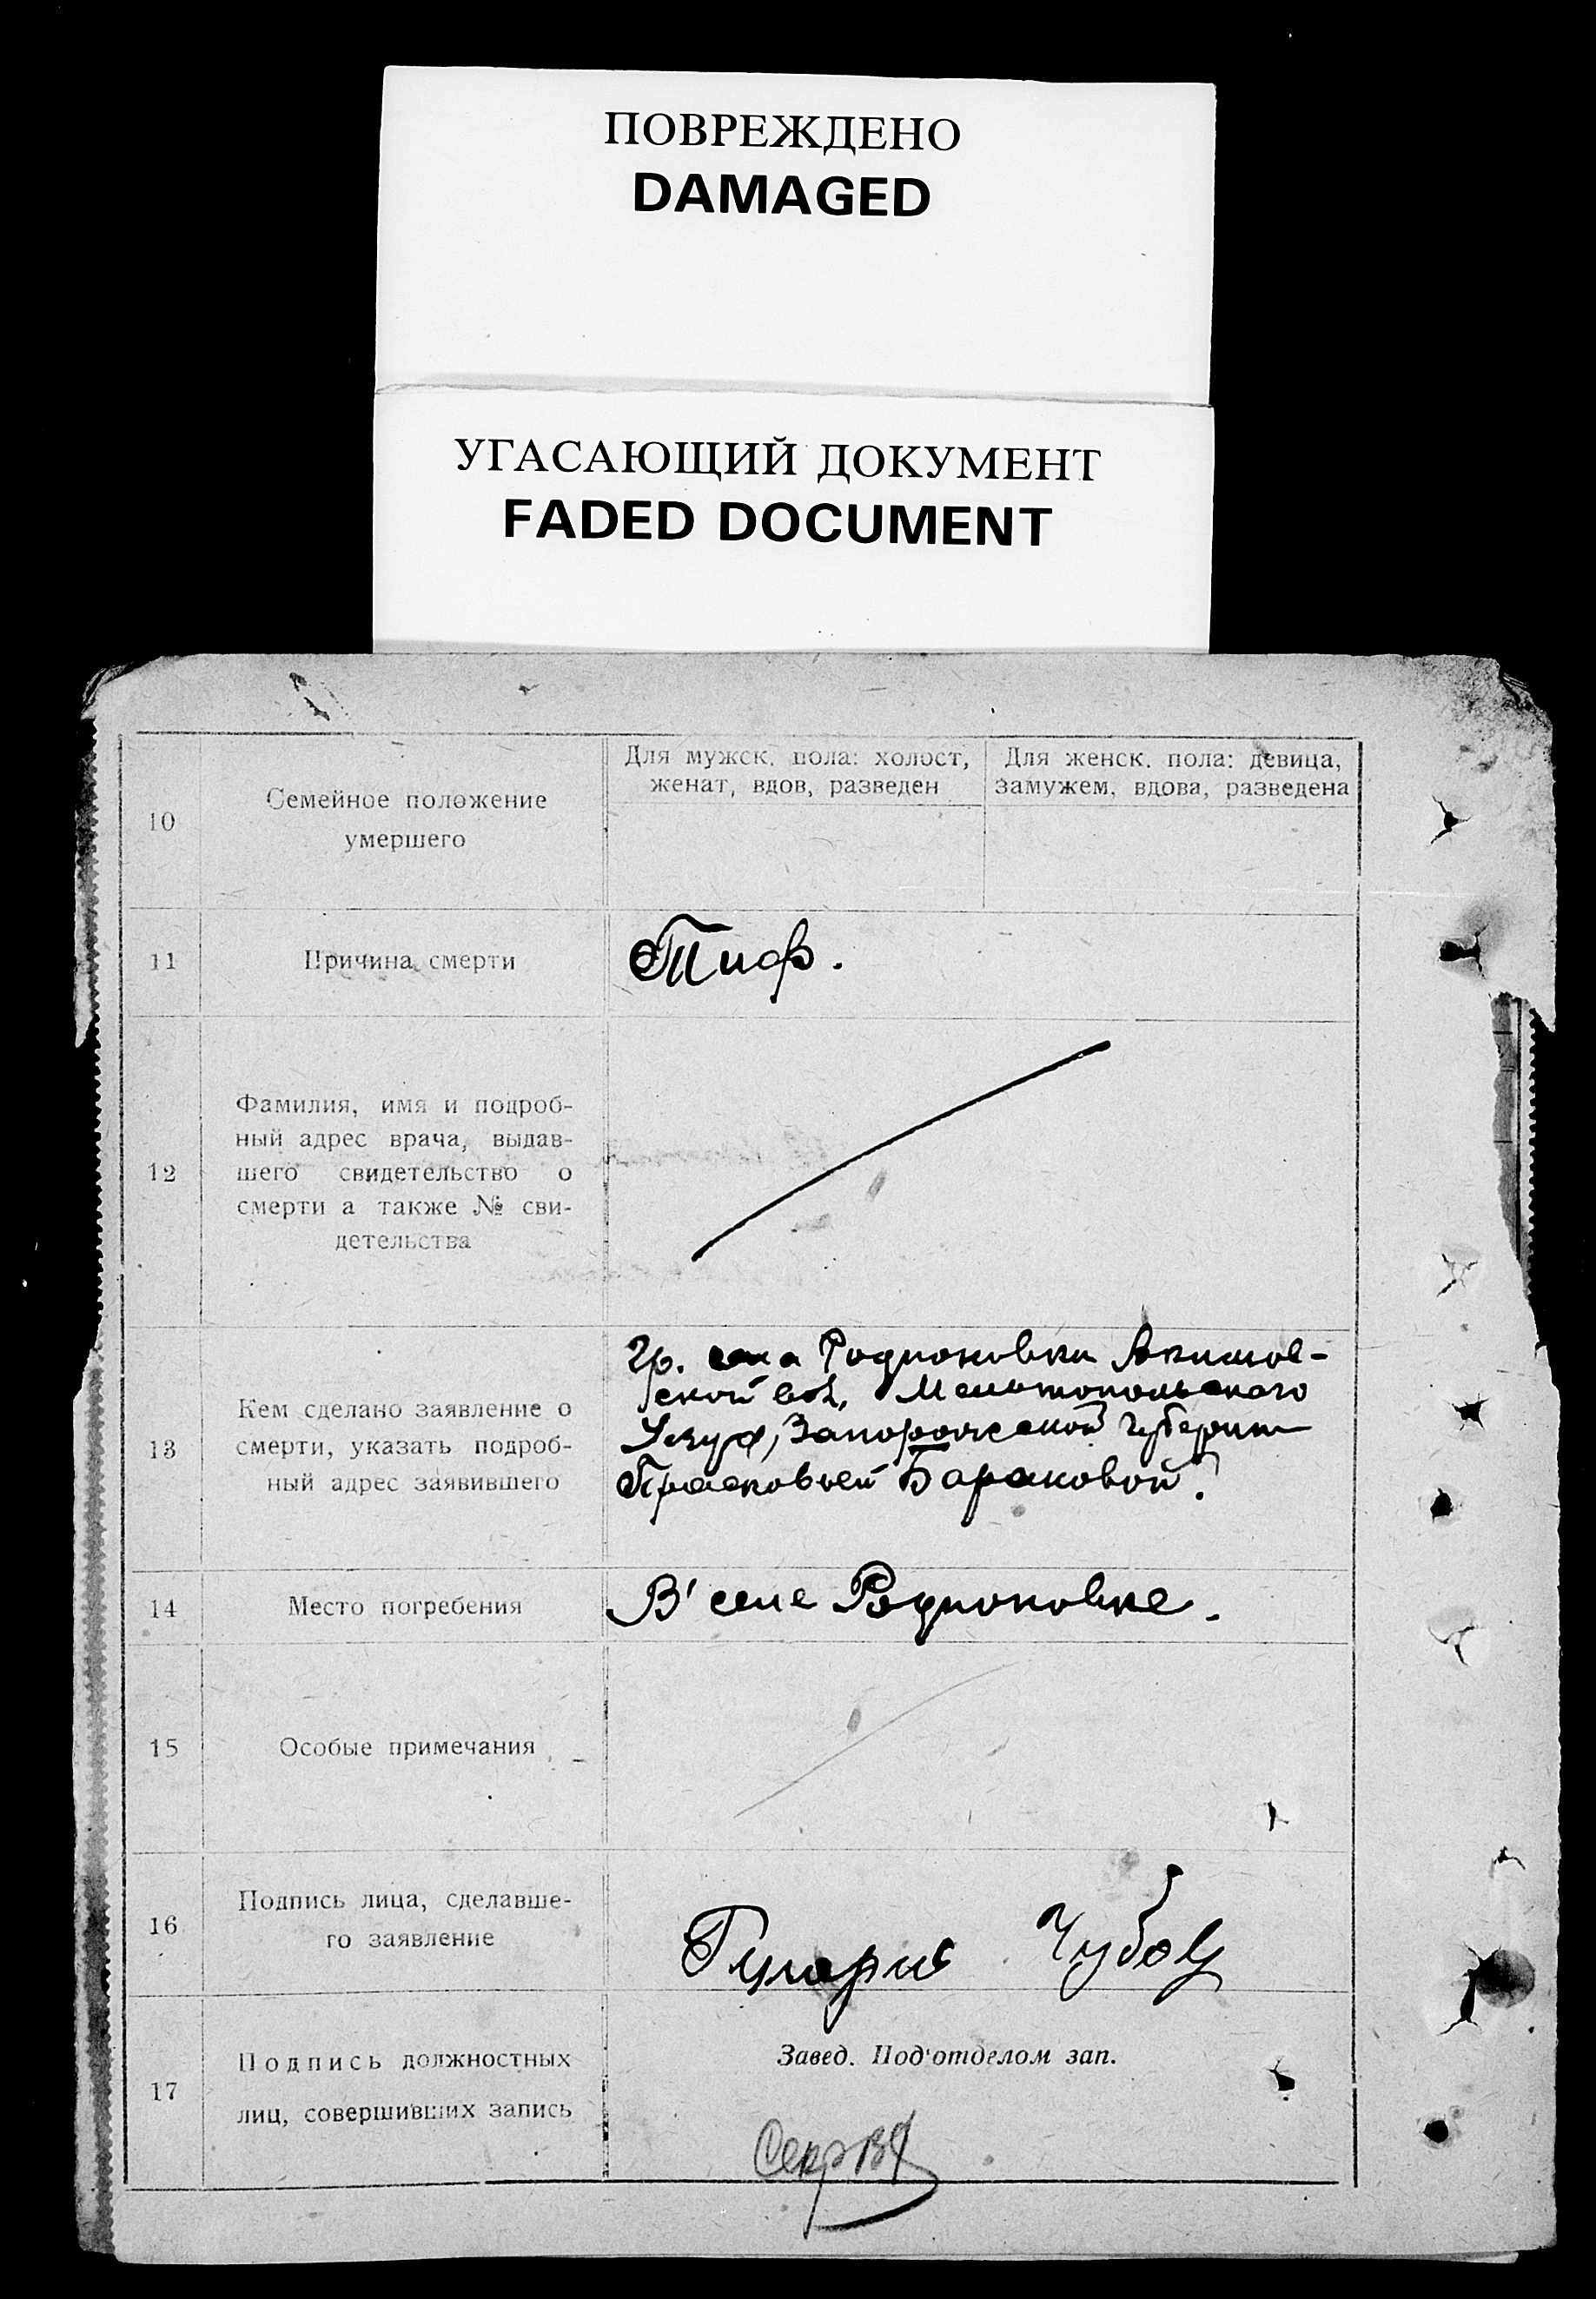 ПОВРЕЖДЕНО
DAMAGED
УГАСАЮЩИЙ ДОКУМЕНТ
FADED DOCUMENT
10
Семейное положение
умершего
Для мужск. пола: холост,
женат, вдов, разведен
Для женск. пола: девица,
замужем, вдова, разведена
11
Причина смерти
Тиф.
12
Фамилия, имя и подроб-
ный адрес врача, выдав-
шего свидетельство о
смерти а также № сви-
детельства
13
Кем сделано заявление о
смерти, указать подроб-
ный адрес заявившего
Гр. села Родионовки Акимов-
ской вол. Мелитопольского
Уезда, Запорожской Губернии
Прасковьей Бараковой.
14
Место погребения
В селе Родионовке.
15
Особые примечания
16
Подпись лица, сделавше-
го заявление
Чубов
17
Подпись должностных
лиц, совершивших запись
Завед. Под'отделом зап.